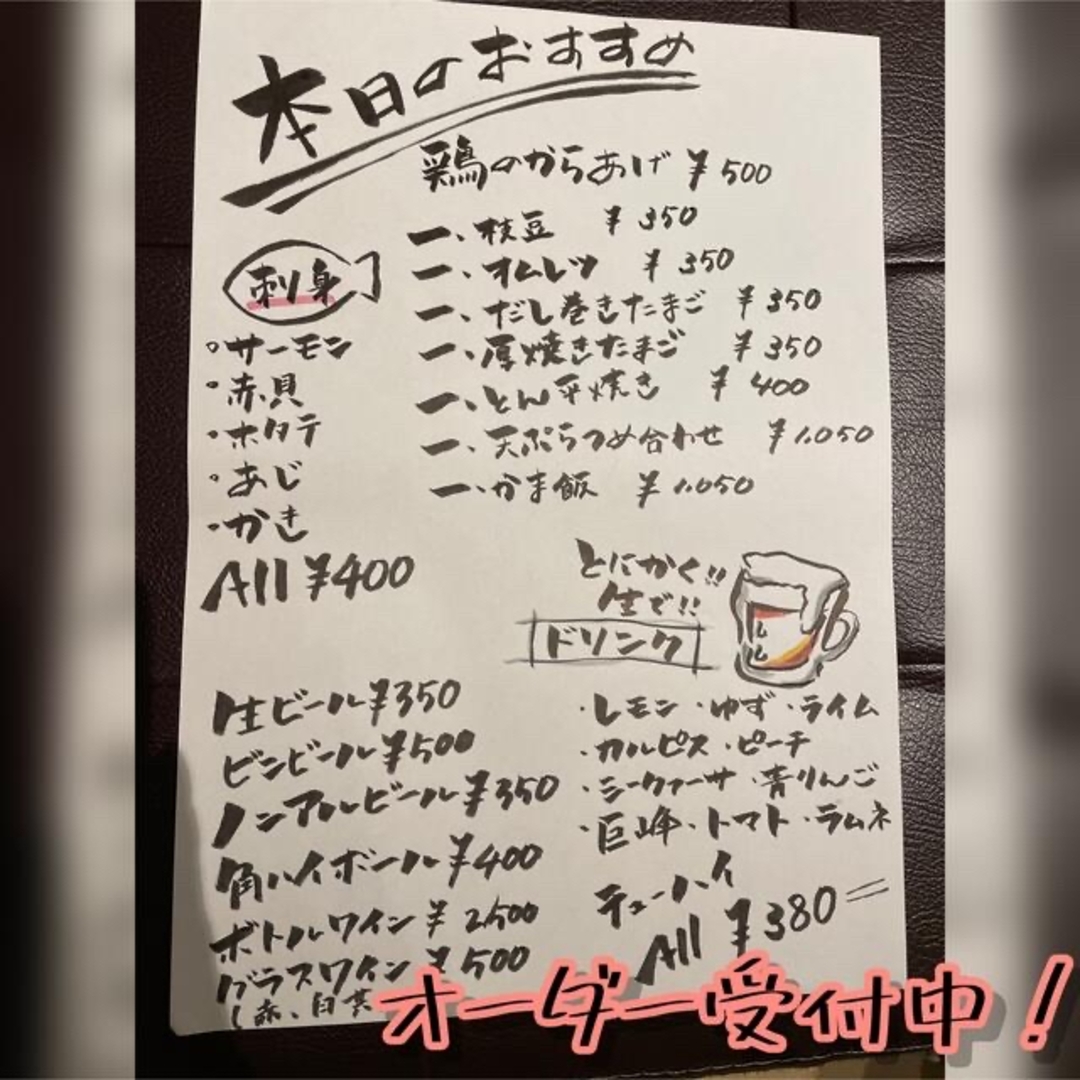 本日のおすすめ
鶏のからあげ ¥500
一、枝豆 ¥350
一、オムレツ ¥350
一、だし巻きたまご ¥350
一、厚焼きたまご ¥350
一、とん平焼き ¥400
一、天ぷらつめ合わせ ¥1.050
一、かま飯 ¥1.050
刺身
・サーモン
・赤貝
・ホタテ
・あじ
・かき
All ¥400
とにかく!!
生で!!
ドリンク
生ビール¥350
ビンビール¥500
ノンアルビール¥350
角ハイボール¥400
ボトルワイン¥2,500
グラスワイン¥500
赤、白
・レモン・ゆず・ライム
・カルピス・ピーチ
・シークァーサ・青りんご
・巨峰・トマト・ラムネ
チューハイ
All ¥380
オーダー受付中!